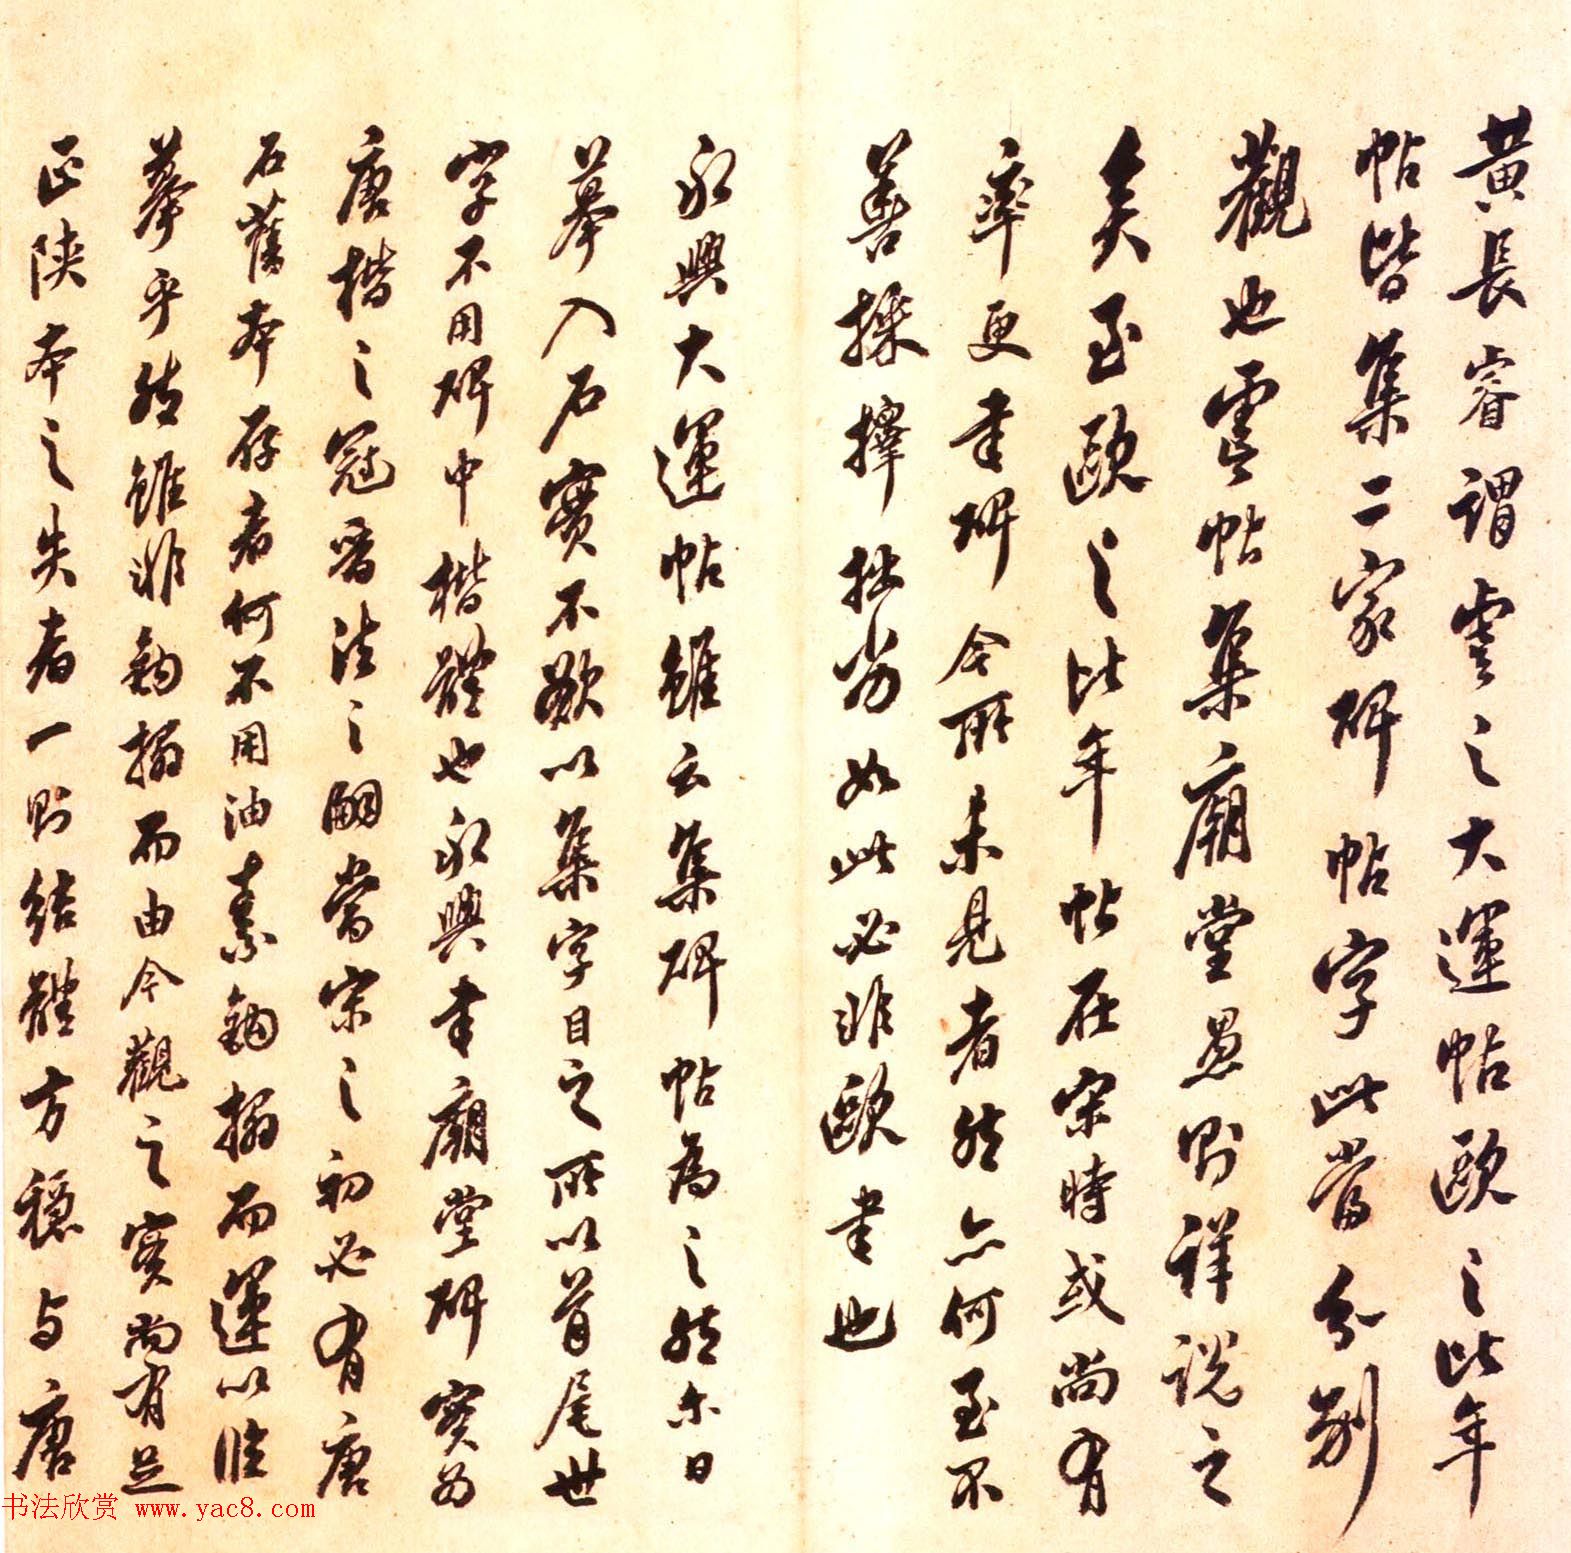 黄長睿謂虞之大運帖歐之比年
帖皆集二家碑帖字此當分別
觀也虞帖集廟堂愚則詳說之
矣至歐之比年帖在宋時或尚有
率更書碑今所未見者然亦何至不
善採擇拙劣如此必非歐書也
永興大運帖雖云集碑帖為之然爾日
摹入石實不欲以集字目之所以首尾世
字不用碑中楷體也永興書廟堂碑實為
唐楷之冠晉法之嗣當宋之初必有唐
石舊本存者何不用油素鉤搨而運以臨
摹乎然雖非鉤搨而由今觀之實尚有足
正陝本之失者一則結體方穩与唐
书法欣赏 www.yac8.com